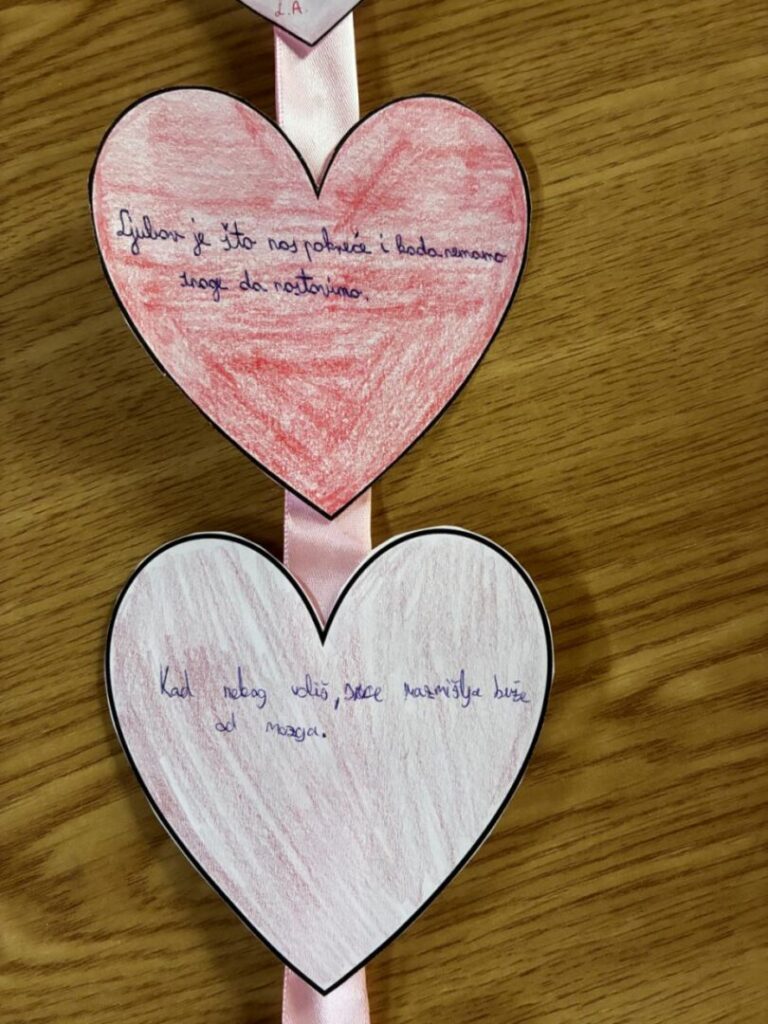 L.A.
Ljubav je što nas pokreće i kada nemamo
snage da nastavimo.
Kad nekog voliš, srce razmišlja brže
od mozga.